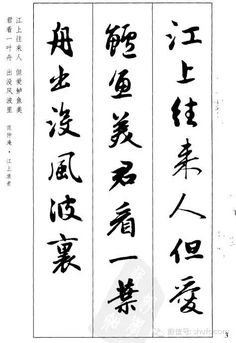 江上往来人但愛
鱸魚美君看一葉
舟出没風波裏
江上往来人 但爱鲈鱼美
君看一叶舟 出没风波里
范仲淹·江上渔者
3